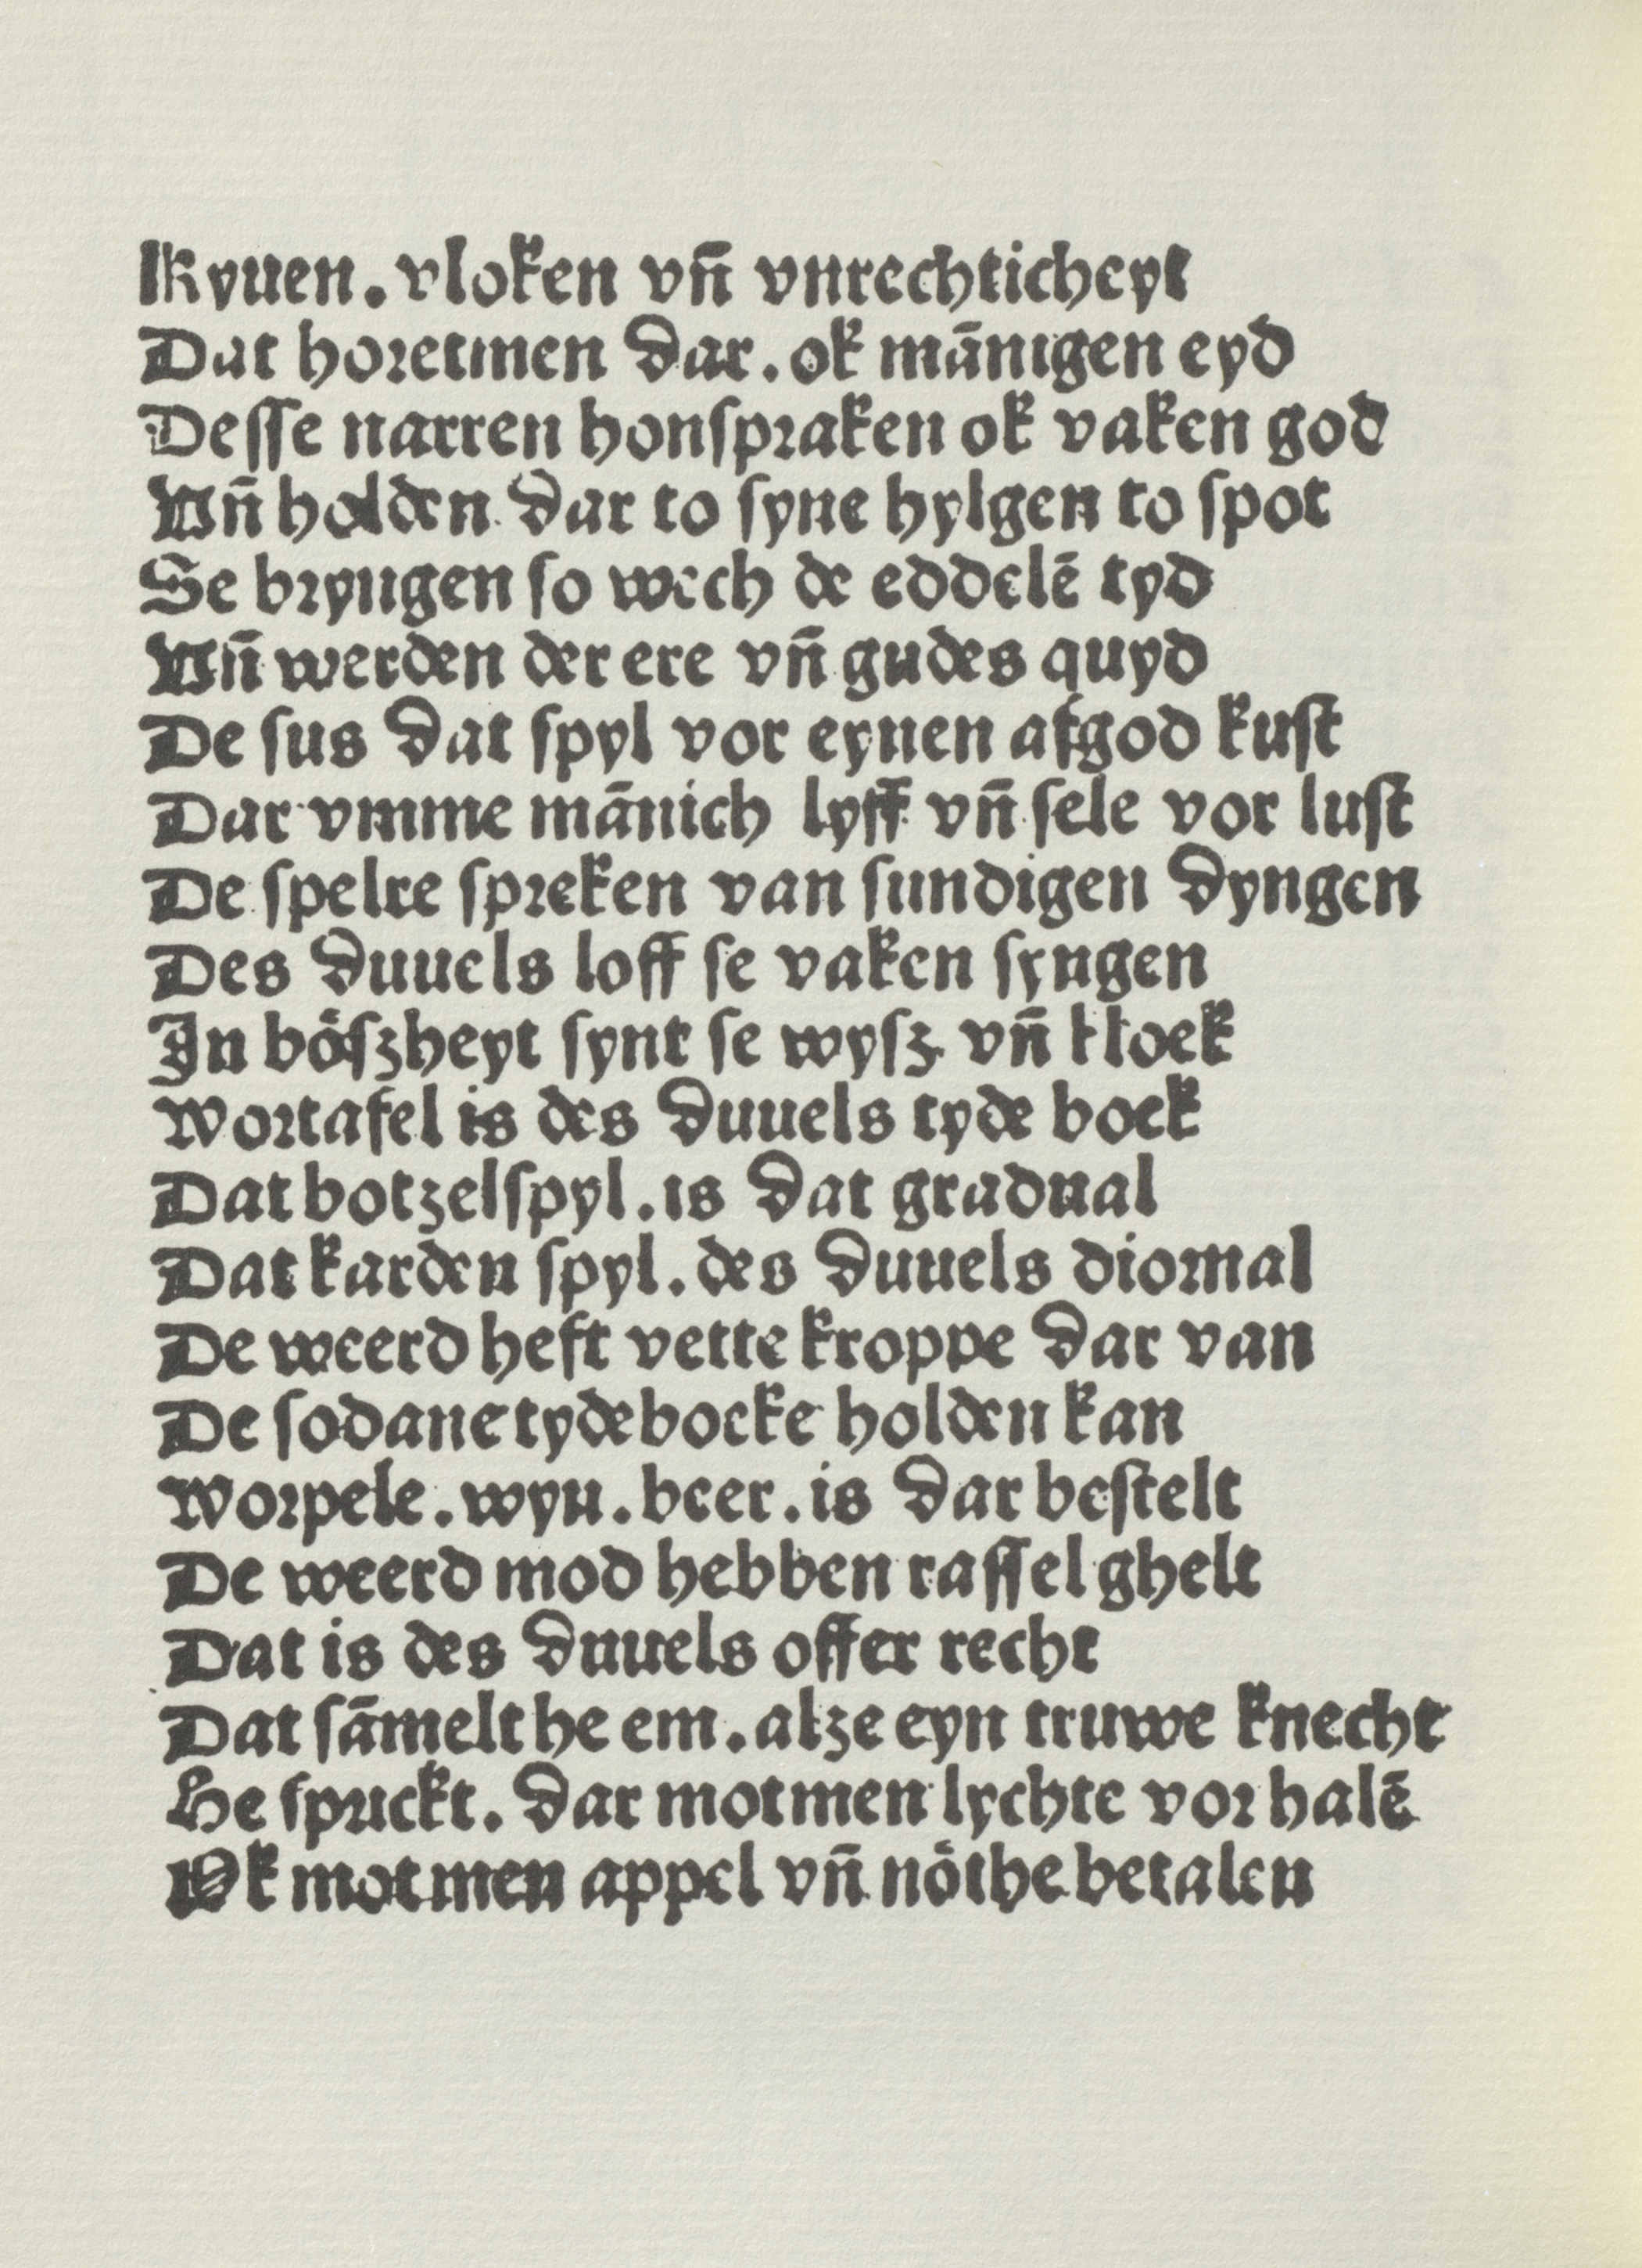 Kyuen. vloken vn̄ vnrechticheyt
Dat horetmen dar. ok mānigen eyd
Desse narren honspraken ok vaken god
Vn̄ holden dar to syne hylgen to spot
Se bryngen so wech de eddelē tyd
Vn̄ werden der ere vn̄ gudes quyd
De sus dat spyl vor eynen afgod kust
Dar vmme mānich lyff vn̄ sele vor lust
De spelre spreken van sundigen dyngen
Des duuels loff se vaken syngen
In bößheyt synt se wyß vn̄ kloek
Wortafel is des duuels tyde boek
Dat botzelspyl. is dat gradual
Dat karden spyl. des duuels diornal
De weerd heft vette kroppe dar van
De sodane tydeboeke holden kan
Worpele. wyn. beer. is dar bestelt
De weerd mod hebben raffel ghelt
Dat is des duuels offer recht
Dat sāmelt he em. alze eyn truwe knecht
He sprickt. dar motmen lychte vor halē
Ok motmen appel vn̄ nöthe betalen